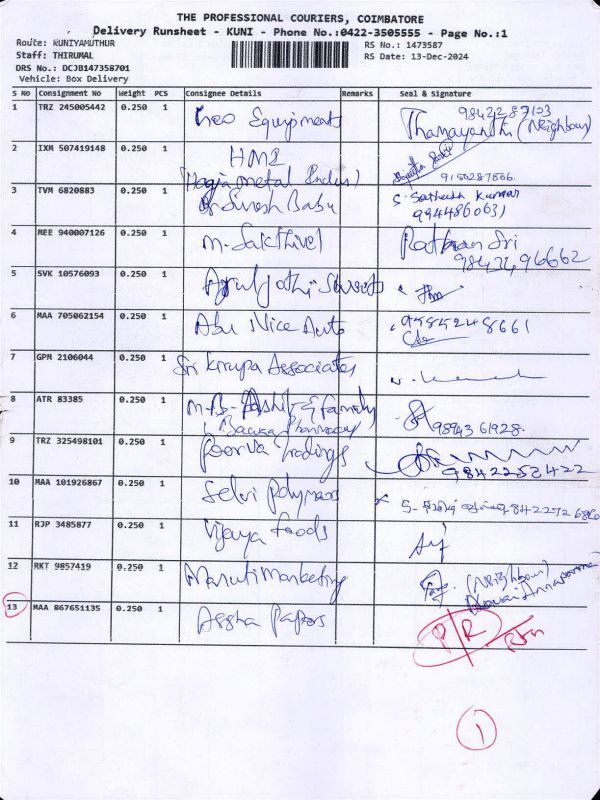 THE PROFESSIONAL COURIERS, COIMBATORE
Delivery Runsheet - KUNI - Phone No.:0422-3505555 - Page No.:1
Route: KUNIYAMUTHUR RS No.: 1473587
Staff: THIRUMAL RS Date: 13-Dec-2024
DRS No.: DCJB147358701
Vehicle: Box Delivery
S No Consignment No Weight PCS Consignee Details Remarks Seal & Signature
1 TRZ 245005442 0.250 1 Neo Equipments 9842287103
Thamayanthi (Neighbour)
2 IXM 507419148 0.250 1 HMI
(Hagia metal Indus) 9150287866
3 TVM 6820883 0.250 1 Dr Suresh Babu S. Satheesh Kumar
9944860631
4 MEE 940007126 0.250 1 M. Sakthivel
5 SVK 10576093 0.250 1 Aruljothi Sweets
6 MAA 705062154 0.250 1 Abu Nice Auto 9585248661
7 GPM 2106044 0.250 1 Sri Krupa Associates
8 ATR 83385 0.250 1 & Family
Pharmacy 9894361928
9 TRZ 325498101 0.250 1 Poorva Tradings 9842252422
10 MAA 101926867 0.250 1 Selvi Polymers
11 RJP 3485877 0.250 1 Vijaya foods
12 RKT 9857419 0.250 1 Maruti Marketing (Neighbour)
13 MAA 867651135 0.250 1 P/R
1